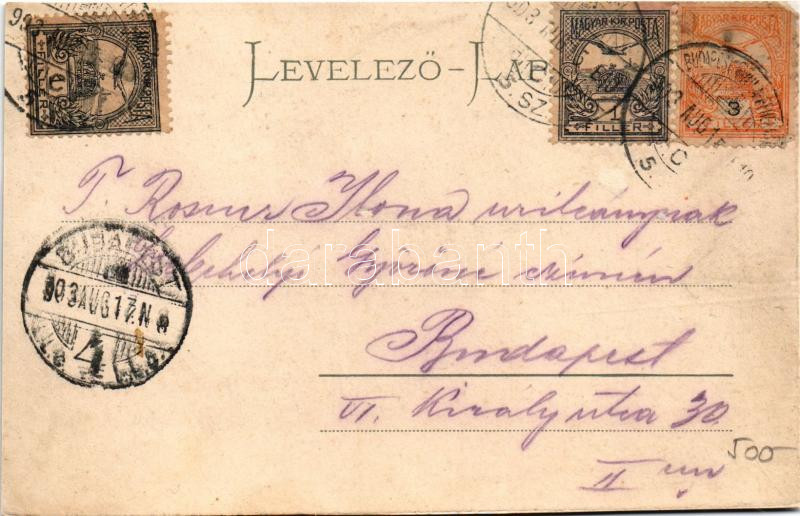 LEVELEZŐ-LAP
MAGYAR KIR. POSTA
1
FILLÉR
MAGYAR KIR. POSTA
1
FILLÉR
MAGYAR KIR. POSTA
3
T. Rosner Ilona urileánynak
Győriné címén
Budapest
VI. Király utca 30
II em
500
BUDAPEST
903 AUG 17 N 8
4
darabanth